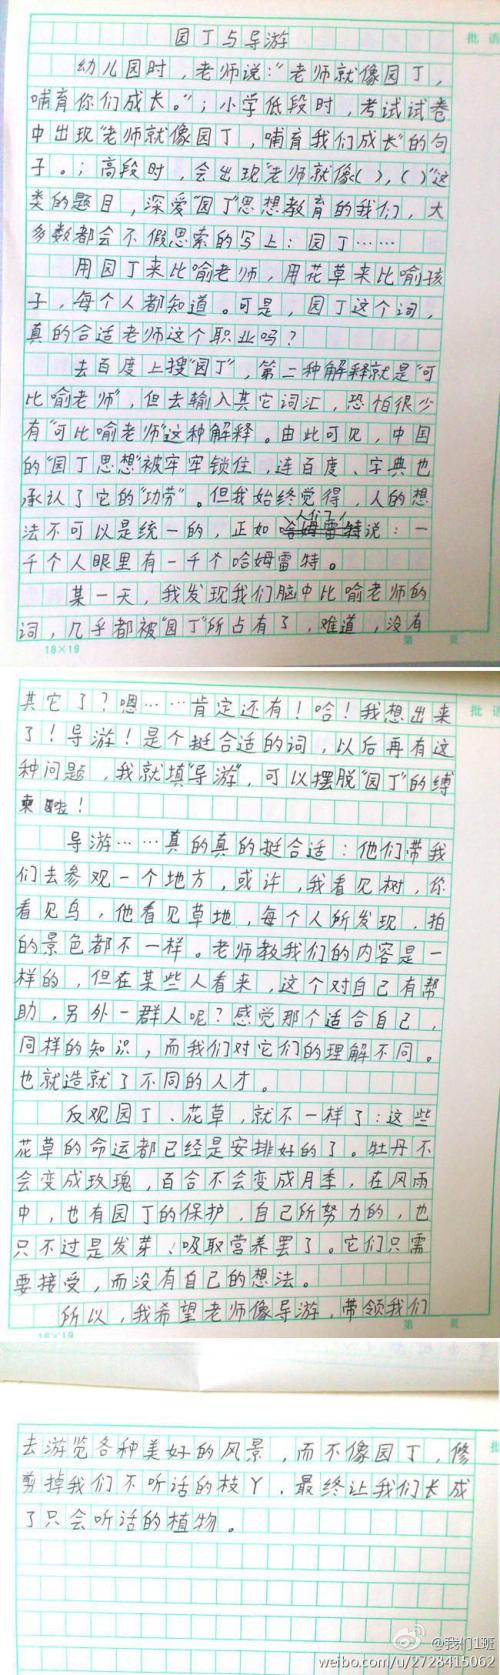 园丁与导游
批语
幼儿园时，老师说："老师就像园丁，
哺育你们成长。"；小学低段时，考试试卷
中出现"老师就像园丁，哺育我们成长"的句
子。；高段时，会出现"老师就像( )，( )"这
类的题目，深爱"园丁"思想教育的我们，大
多数都会不假思索的写上：园丁……
用园丁来比喻老师，用花草来比喻孩
子，每个人都知道。可是，园丁这个词，
真的合适老师这个职业吗？
去百度上搜"园丁"，第二种解释就是"可
比喻老师"，但去输入其它词汇，恐怕很少
有"可比喻老师"这种解释。由此可见，中国
的"园丁思想"被牢牢锁住，连百度、字典也
承认了它的"功劳"。但我始终觉得，人的想
法不可以是统一的，正如人们说：一
千个人眼里有一千个哈姆雷特。
某一天，我发现我们脑中比喻老师的
词，几乎都被"园丁"所占有了，难道，没有
18×19
第 页
其它了？嗯……肯定还有！哈！我想出来
批语
了！导游！是个挺合适的词，以后再有这
种问题，我就填"导游"，可以摆脱"园丁"的缚
束啦！
导游……真的真的挺合适：他们带我
们去参观一个地方，或许，我看见树，你
看见鸟，他看见草地，每个人所发现、拍
的景色都不一样。老师教我们的内容是一
样的，但在某些人看来，这个对自己有帮
助，另外一群人呢？感觉那个适合自己，
同样的知识，而我们对它们的理解不同。
也就造就了不同的人才。
反观园丁、花草，就不一样了：这些
花草的命运都已经是安排好的了。牡丹不
会变成玫瑰，百合不会变成月季，在风雨
中，也有园丁的保护，自己所努力的，也
只不过是发芽、吸取营养罢了。它们只需
要接受，而没有自己的想法。
所以，我希望老师像导游，带领我们
18×19
第 页
去游览各种美好的风景，而不像园丁，修
批
剪掉我们不听话的枝丫，最终让我们长成
了只会听话的植物。
@我们1班
weibo.com/u/2728415062